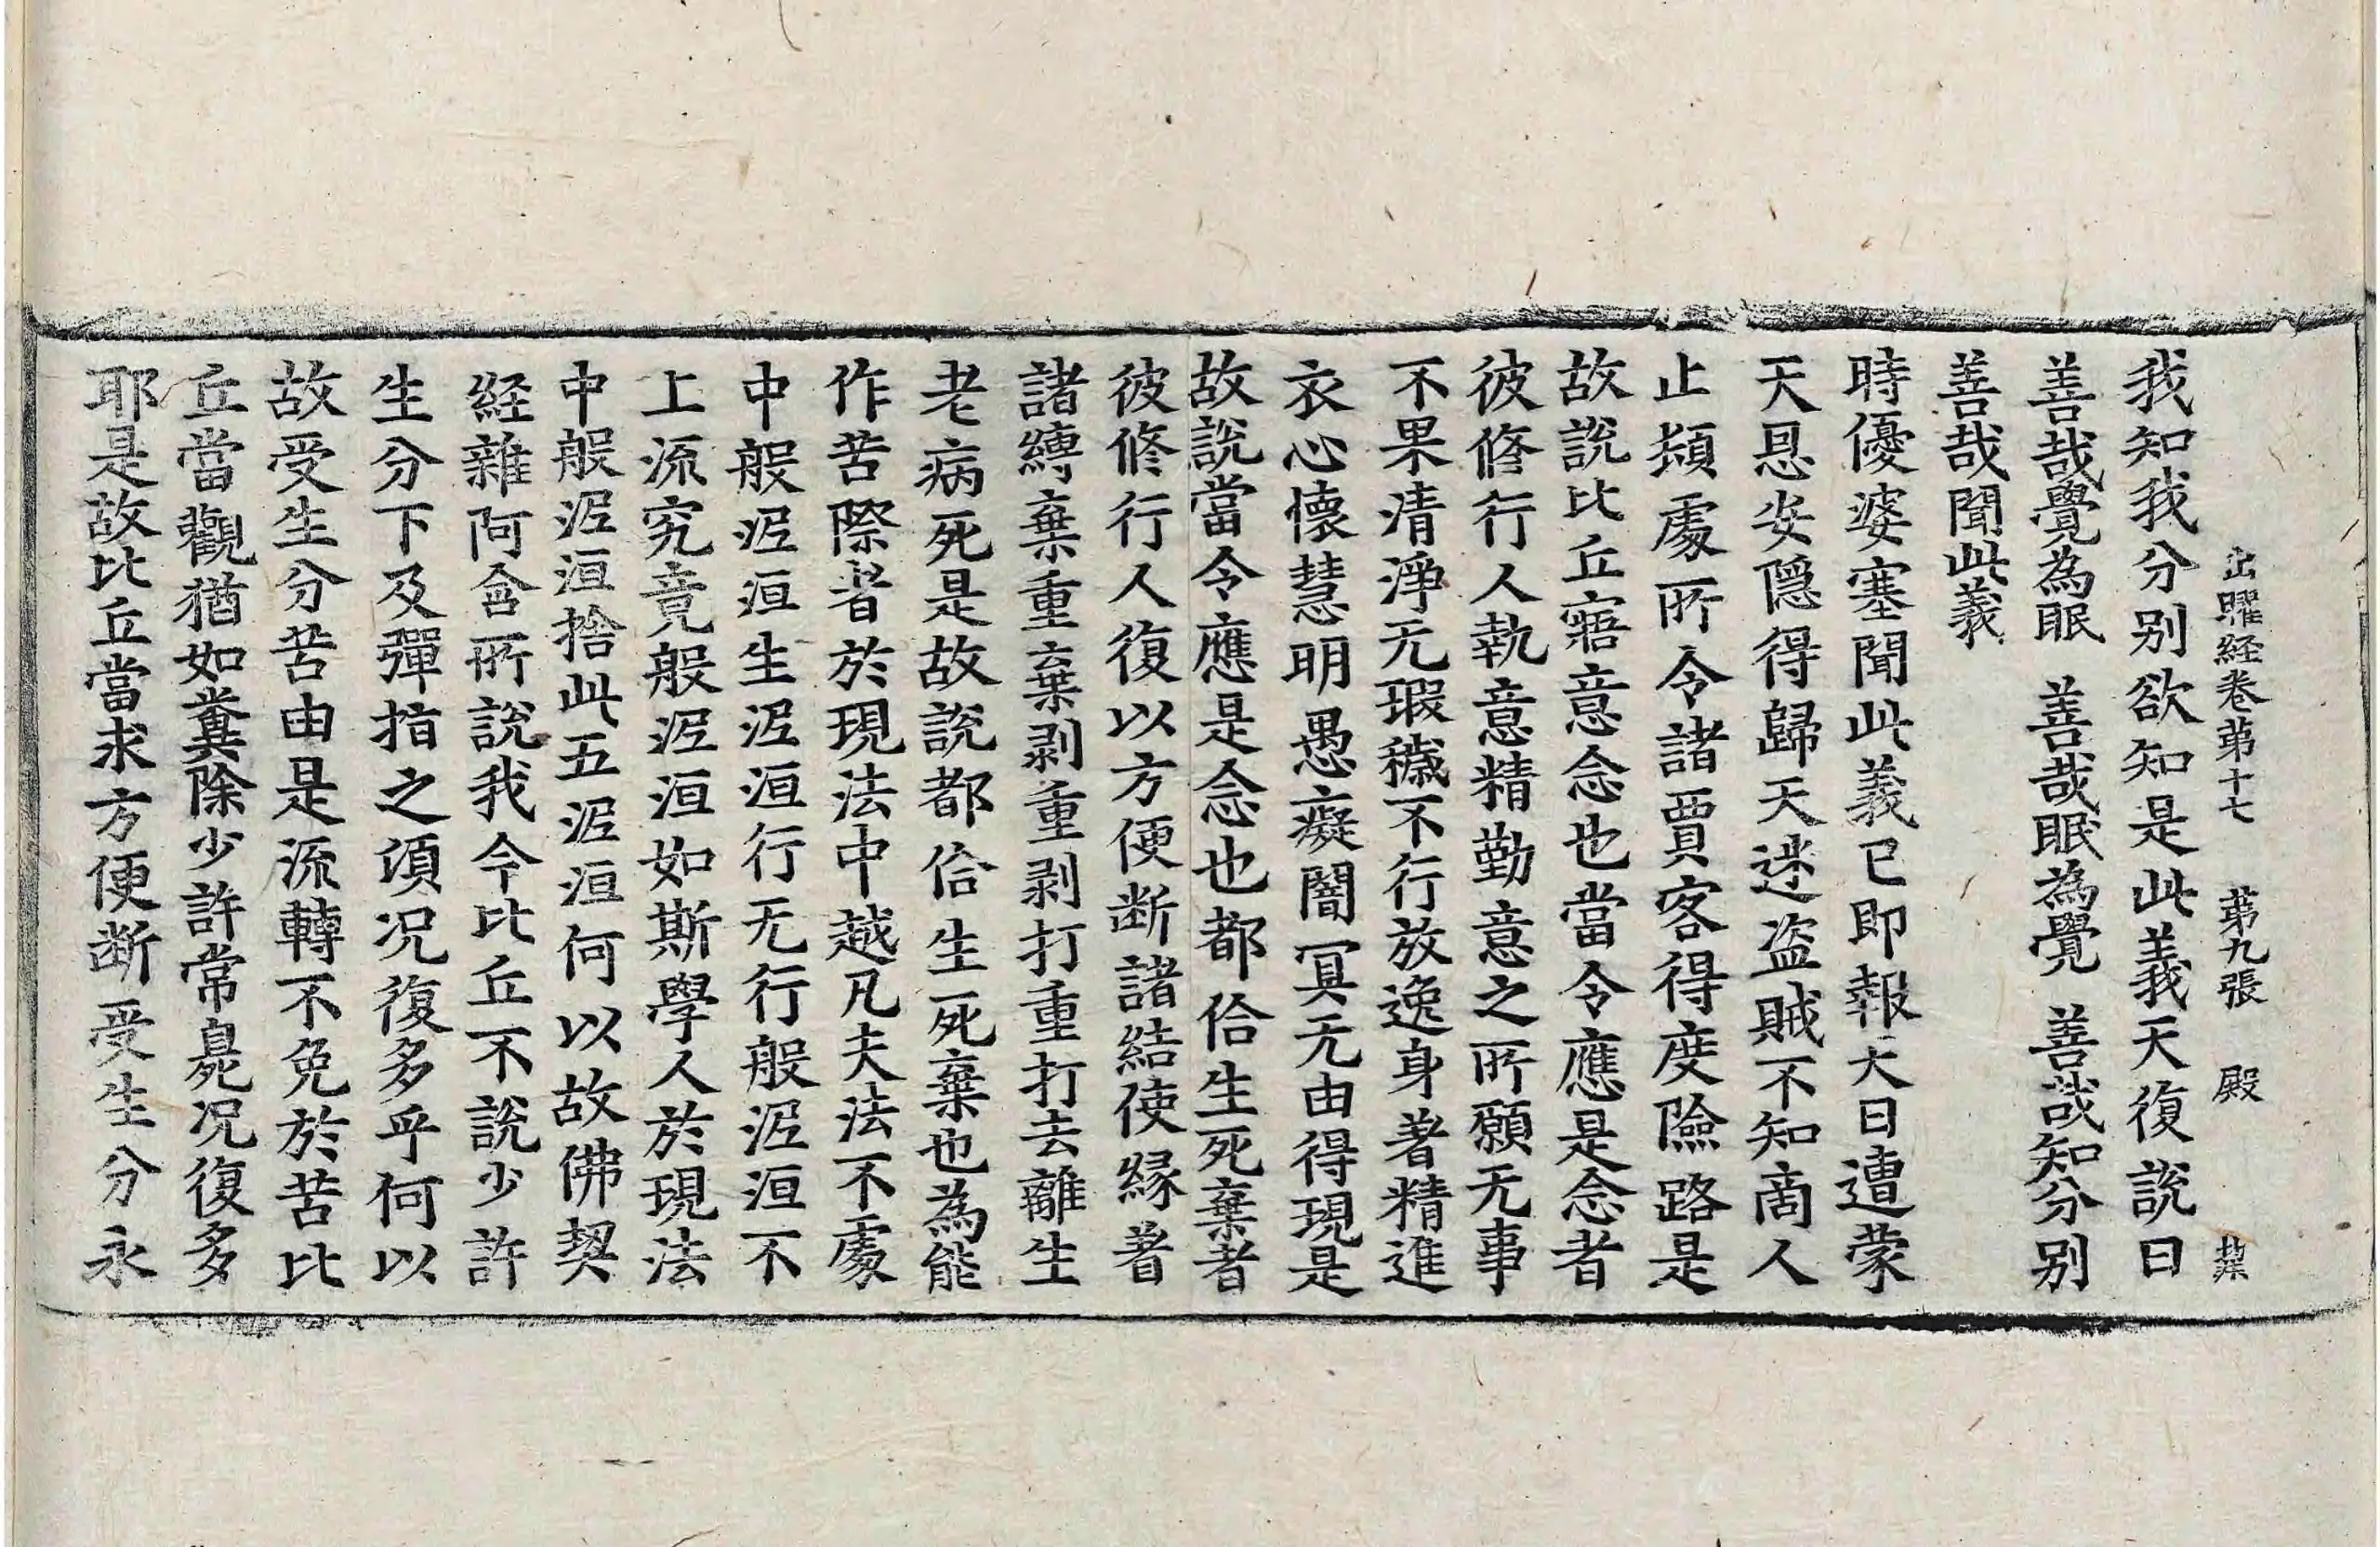 出曜経卷苐十七　苐九張　殿
我知我分别欲知是此義天復說曰
善哉覺為眠　善哉眠為覺　善哉知分别
善哉聞此義
時優婆塞聞此義已即報天曰遭蒙
天恩安隱得歸天迷盗賊不知啇人
止頓處所令諸賈客得度險路是
故說比丘寤意念也當令應是念者
彼修行人執意精勤意之所願无事
不果清淨无瑕穢不行放逸身著精進
衣心懷慧明愚癡闇冥无由得現是
故說當令應是念也都佮生死棄者
彼修行人復以方便断諸結使縁著
諸縛棄重棄剥重剥打重打去離生
老病死是故說都佮生死棄也為能
作苦際者於現法中越凡夫法不處
中般泥洹生泥洹行无行般泥洹不
上流究竟般泥洹如斯學人於現法
中般泥洹捨此五泥洹何以故佛契
経雜阿含所說我今比丘不說少許
生分下及彈指之頃况復多乎何以
故受生分苦由是流轉不免於苦比
丘當觀猶如糞除少許常臰况復多
耶是故比丘當求方便断受生分永